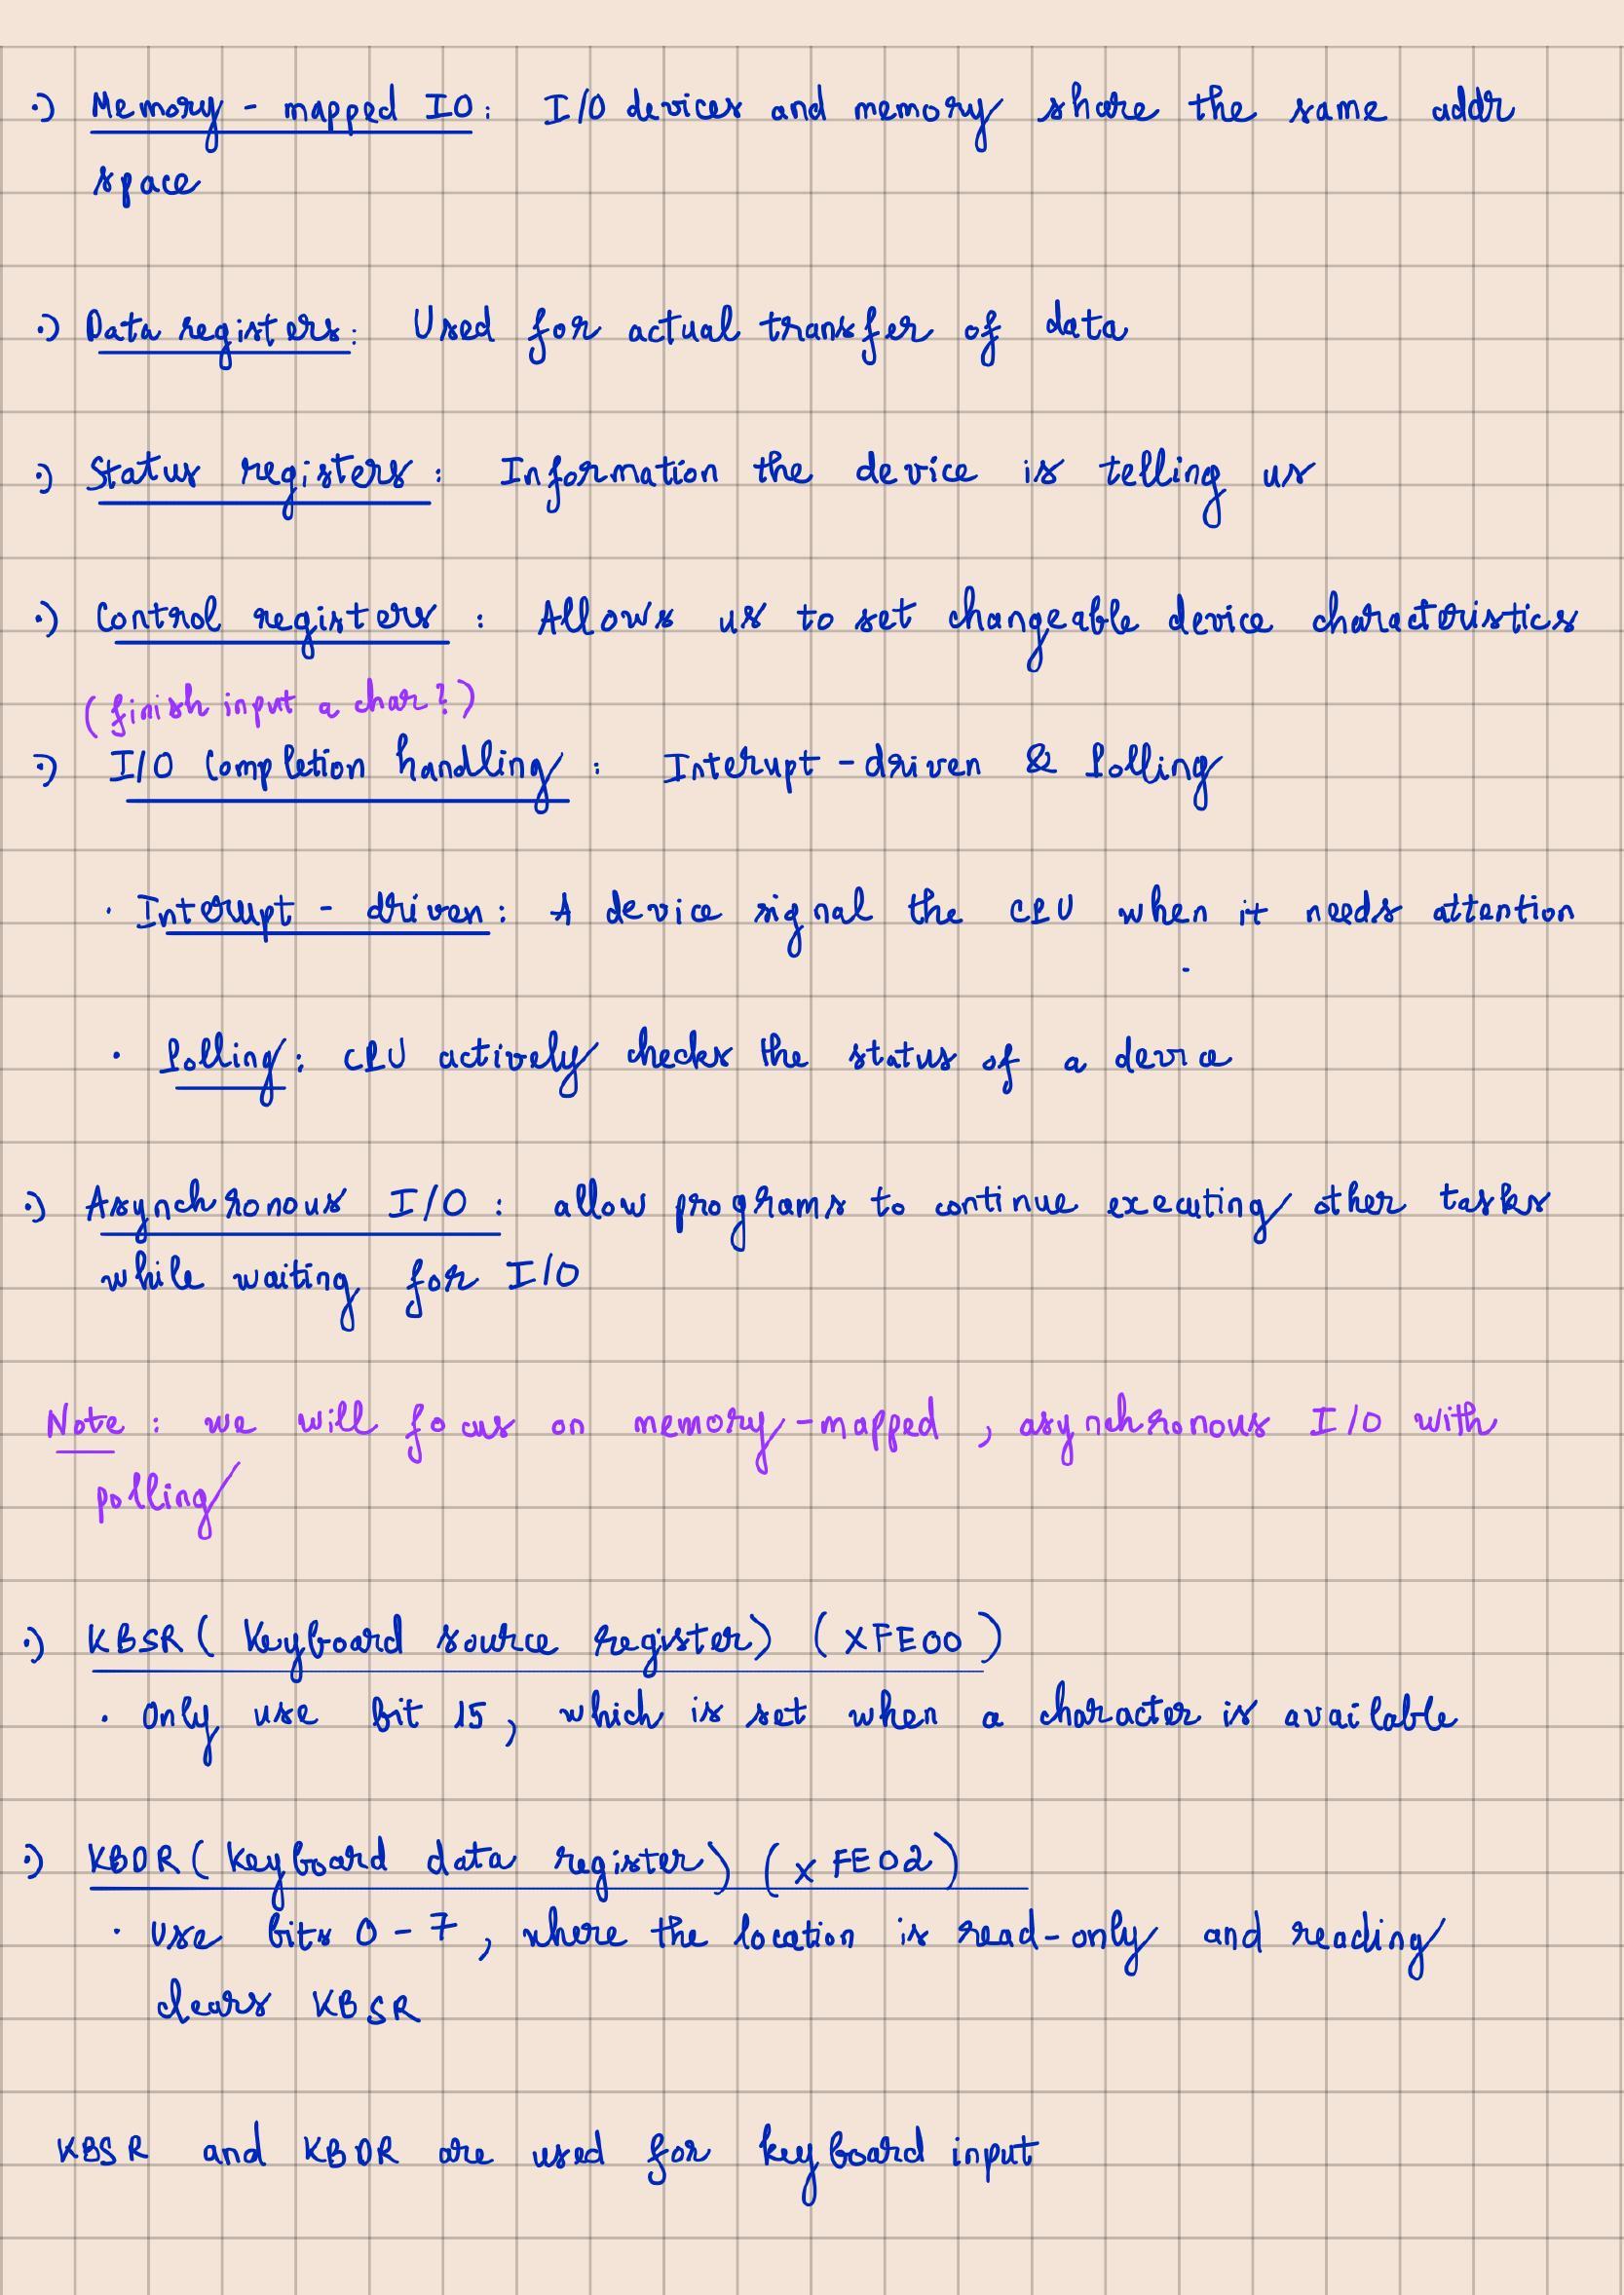 ·) Memory - mapped IO: I/O devices and memory share the same addr
space
·) Data registers: Used for actual transfer of data
·) Status registers: Information the device is telling us
·) Control registers : Allows us to set changeable device characteristics
(finish input a char?)
·) I/O Completion handling : Interupt-driven & Polling
· Interupt - driven: A device signal the CPU when it needs attention
· Polling: CPU actively checks the status of a device
·) Asynchronous I/O : allow programs to continue executing other tasks
while waiting for I/O
Note : we will focus on memory-mapped , asynchronous I/O with
polling
·) KBSR( Keyboard source register) (xFE00)
· Only use bit 15, which is set when a character is available
·) KBDR( Keyboard data register) (xFE02)
· Use bits 0-7, where the location is read-only and reading
clears KBSR
KBSR and KBDR are used for keyboard input